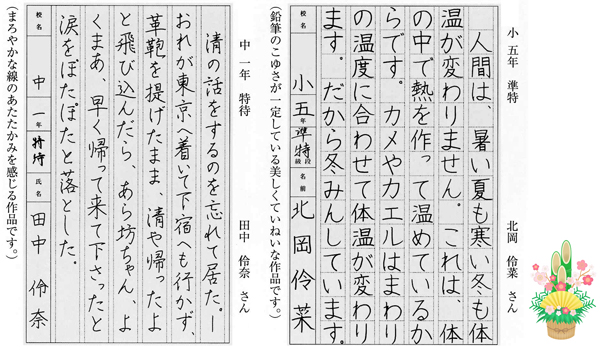 小 五年 準特
北岡 伶菜 さん
校名
人間は、暑い夏も寒い冬も体
温が変わりません。これは、体
の中で熱を作って温めているか
らです。カメやカエルはまわり
の温度に合わせて体温が変わり
ます。だから冬みんしています。
小五年準特 級段 名前 北岡伶菜
(鉛筆のこゆさが一定している美しくていねいな作品です。)
中 一年 特待
田中 伶奈 さん
校名
清の話をするのを忘れて居た。ー
おれが東京へ着いて下宿へも行かず、
革鞄を提げたまま、清や帰ったよ
と飛び込んだら、あら坊ちゃん、よ
くまあ、早く帰って来て下さったと
涙をぼたぼたと落とした。
校名 中 一年 特待 氏名 田中 伶奈
(まろやかな線のあたたかみを感じる作品です。)